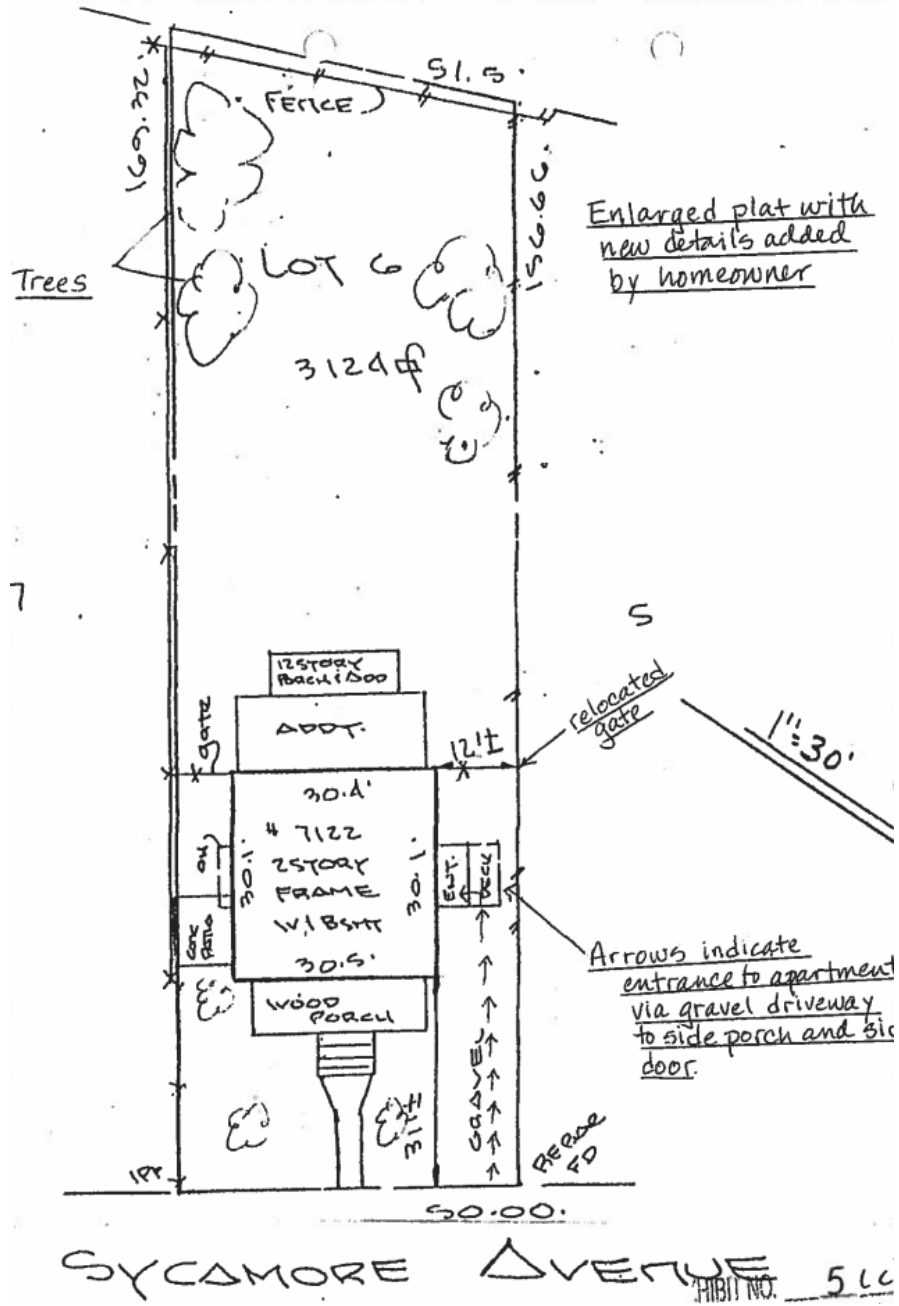 51.5'
FENCE
169.32'
156.66'
Enlarged plat with
new details added
by homeowner
Trees
LOT 6
3124
7
5
12STORY
PORCH & ADD
ADDT.
gate
relocated
gate
12'±
1"=30'
30.4'
# 7122
2STORY
FRAME
W/ BSMT
30.5'
30.1'
30.1'
OH
CONC
PATIO
ENT.
DECK
WOOD
PORCH
Arrows indicate
entrance to apartment
via gravel driveway
to side porch and sid
door.
GRAVEL
31'±
REBAR
FD
IPF
50.00'
SYCAMORE AVENUE
HIBIT NO. 5